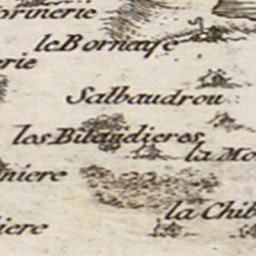 orinerie
le Bornaye
erie
Salbaudrou
les Bilaudieres
la Mo
niere
la Chib
iere